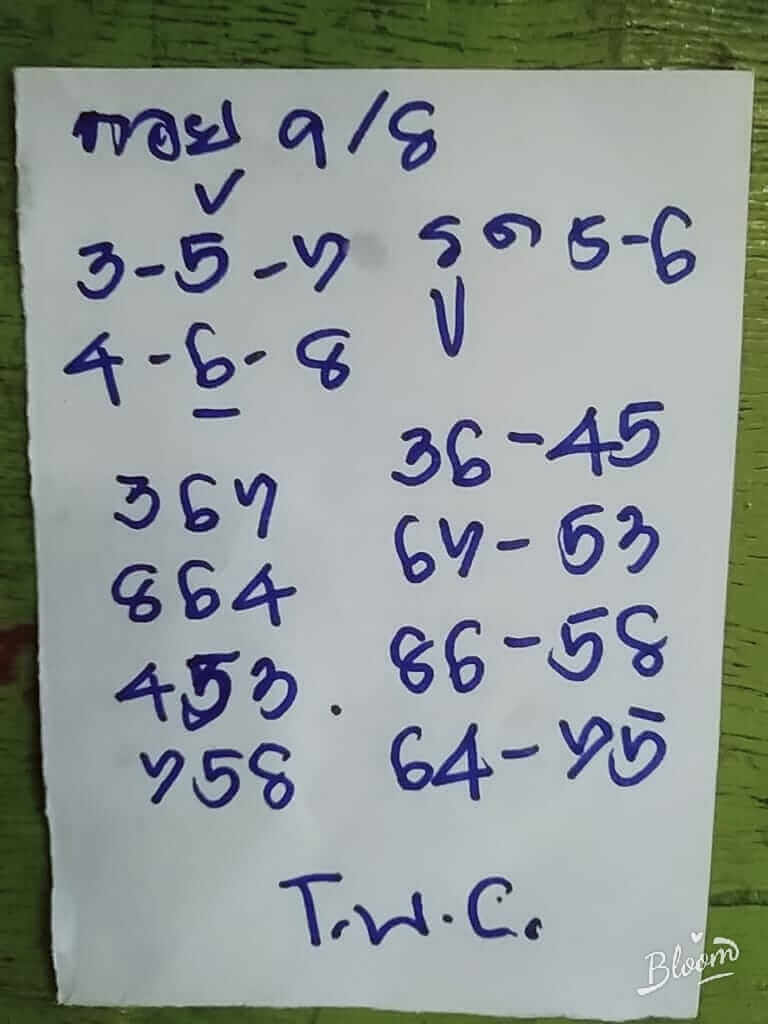 ฮอย 9/8
3-5-7 รูด 5-6
4-6-8
367
864
453
758
36-45
67-53
86-58
64-75
T.พ.C.
Bloom